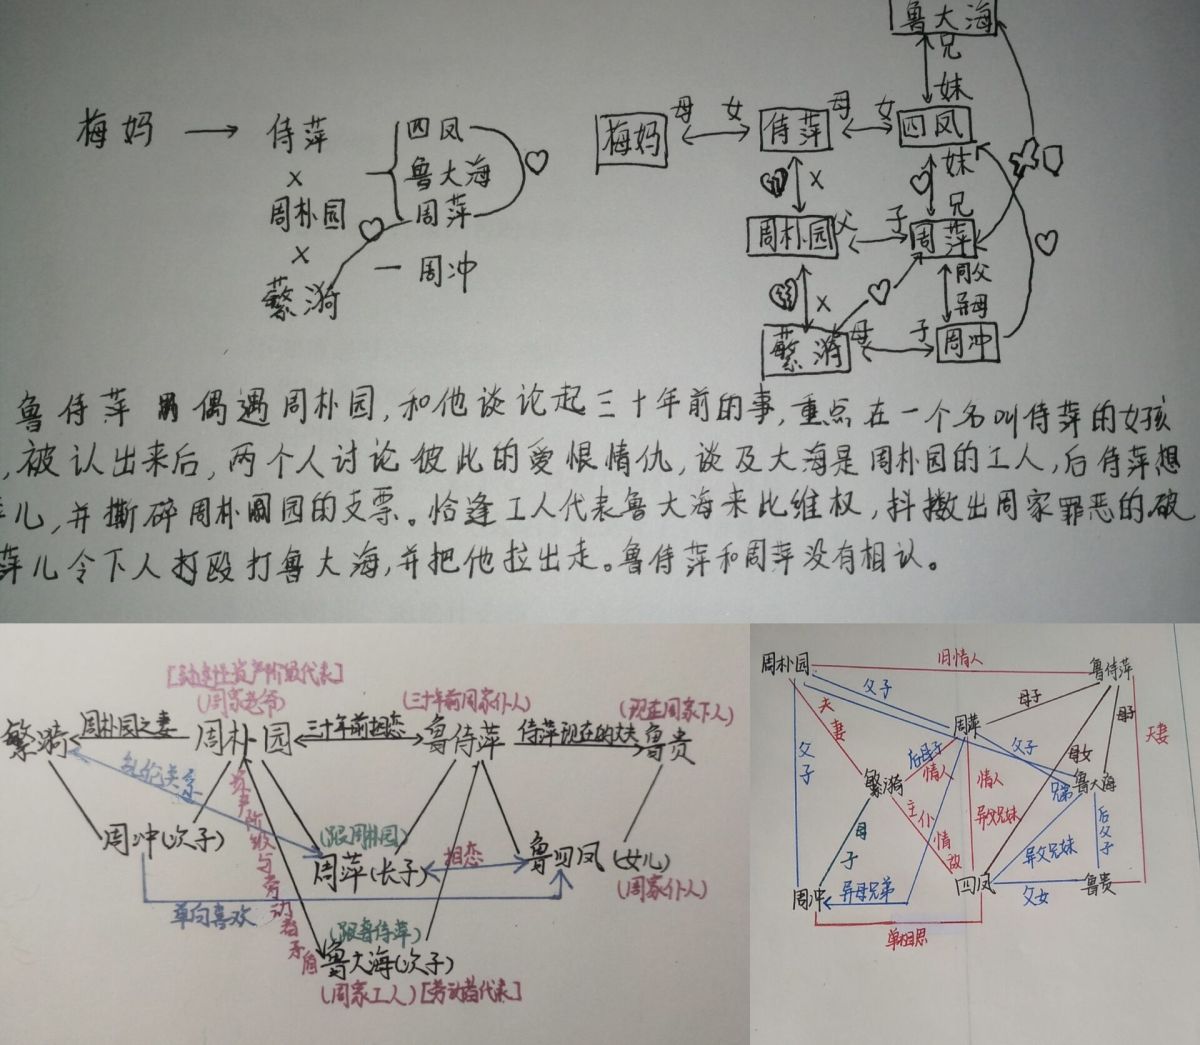 梅妈 → 侍萍
×
周朴园
×
蘩漪
四凤
鲁大海
周萍
一 周冲
鲁大海
兄
妹
梅妈 母 女 侍萍 母 女 四凤
× 妹
兄
周朴园 父 子 周萍
× 同父
异母
蘩漪 母 子 周冲
鲁侍萍偶遇周朴园,和他谈论起三十年前的事,重点在一个名叫侍萍的女孩
,被认出来后,两个人讨论彼此的爱恨情仇,谈及大海是周朴园的工人,后侍萍想
儿,并撕碎周朴园的支票。恰逢工人代表鲁大海来比维权,抖擞出周家罪恶的破
萍儿令下人打殴打鲁大海,并把他拉出走。鲁侍萍和周萍没有相认。
资产阶级代表]
(周家老爷) (三十年前周家仆人) (现在周家下人)
繁漪 周朴园之妻 周朴园 三十年前相恋 鲁侍萍 侍萍现在的丈夫 鲁贵
乱伦关系
资产阶级与劳动者矛盾
周冲(次子) (跟周朴园)
周萍(长子) 相恋 鲁四凤 (女儿)
(周家仆人)
单向喜欢
(跟鲁侍萍)
鲁大海(次子)
(周家工人) [劳动者代表]
周朴园 旧情人 鲁侍萍
父子
母子
母子
夫妻
周萍
父子
夫妻
父子
后母子
情人
母女
繁漪
情人
异父兄妹
兄弟
鲁大海
主仆
情敌
后父子
母子
异父兄妹
周冲 异母兄弟 四凤 父女 鲁贵
单相思